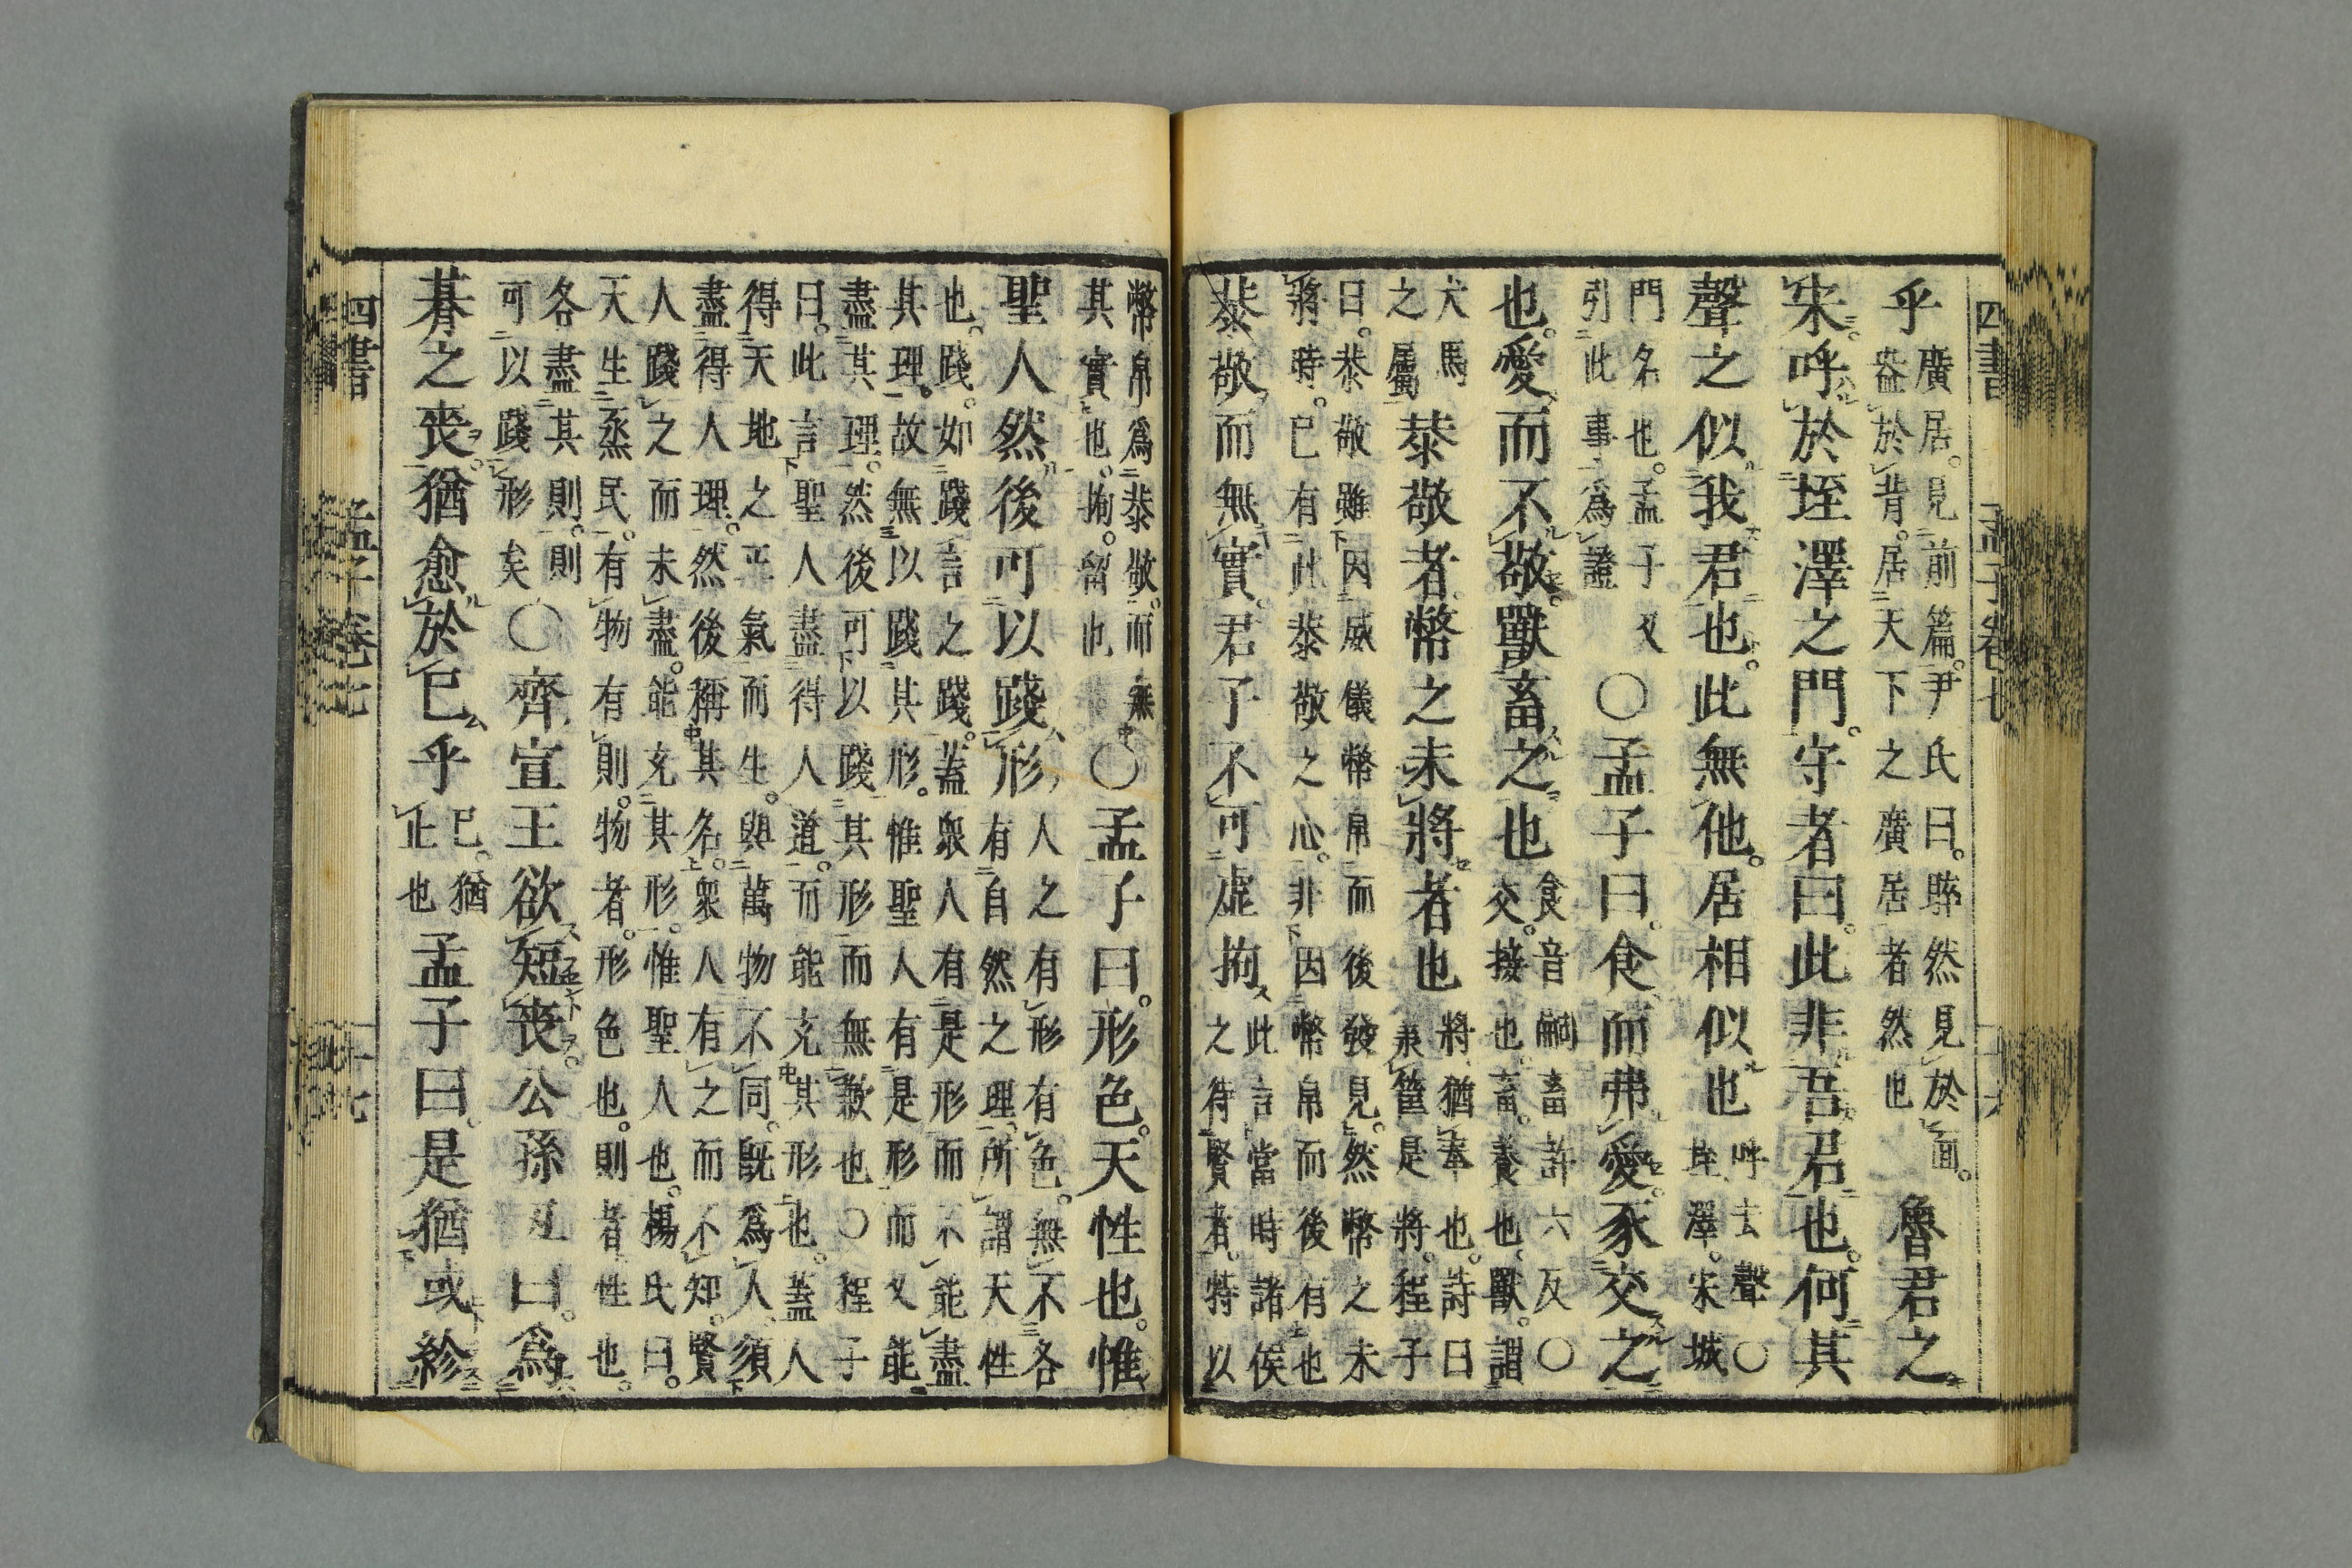 四書　孟子卷七　十六
乎
廣居。見前篇。尹氏曰。睟然見於面。
盎於背。居天下之廣居者然也
魯君之
宋。呼於垤澤之門。守者曰。此非吾君也。何其
聲之似我君也。此無他。居相似也
呼去聲○
垤澤。宋城
門名也。孟子又
引此事爲證
○孟子曰。食而弗愛。豕交之
也。愛而不敬。獸畜之也
食音嗣畜許六反○
交。接也。畜。養也。獸。謂
犬馬
之屬
恭敬者。幣之未將者也
將猶奉也。詩曰
承筐是將。程子
曰。恭敬雖因威儀幣帛而後發見。然幣之未
將時。已有此恭敬之心。非因幣帛而後有也
恭敬而無實。君子不可虛拘
此言當時諸侯
之待賢者。特以
幣帛爲恭敬。而無
其實也。拘。留也
○孟子曰。形色。天性也。惟
聖人然後可以踐形
人之有形有色。無不各
有自然之理。所謂天性
也。踐。如踐言之踐。蓋衆人有是形而不能盡
其理。故無以踐其形。惟聖人有是形而又能
盡其理。然後可以踐其形而無歉也○程子
曰。此言聖人盡得人道。而能充其形也。蓋人
得天地之正氣而生。與萬物不同。既爲人。須
盡得人理。然後稱其名。衆人有之而不知。賢
人踐之而未盡。能充其形。惟聖人也。楊氏曰。
天生烝民。有物有則。物者。形色也。則者性也。
各盡其則。則
可以踐形矣
○齊宣王欲短喪。公孫丑曰。爲
朞之喪。猶愈於已乎
已。猶
止也
孟子曰。是猶或紾
四書　孟子卷七　十七